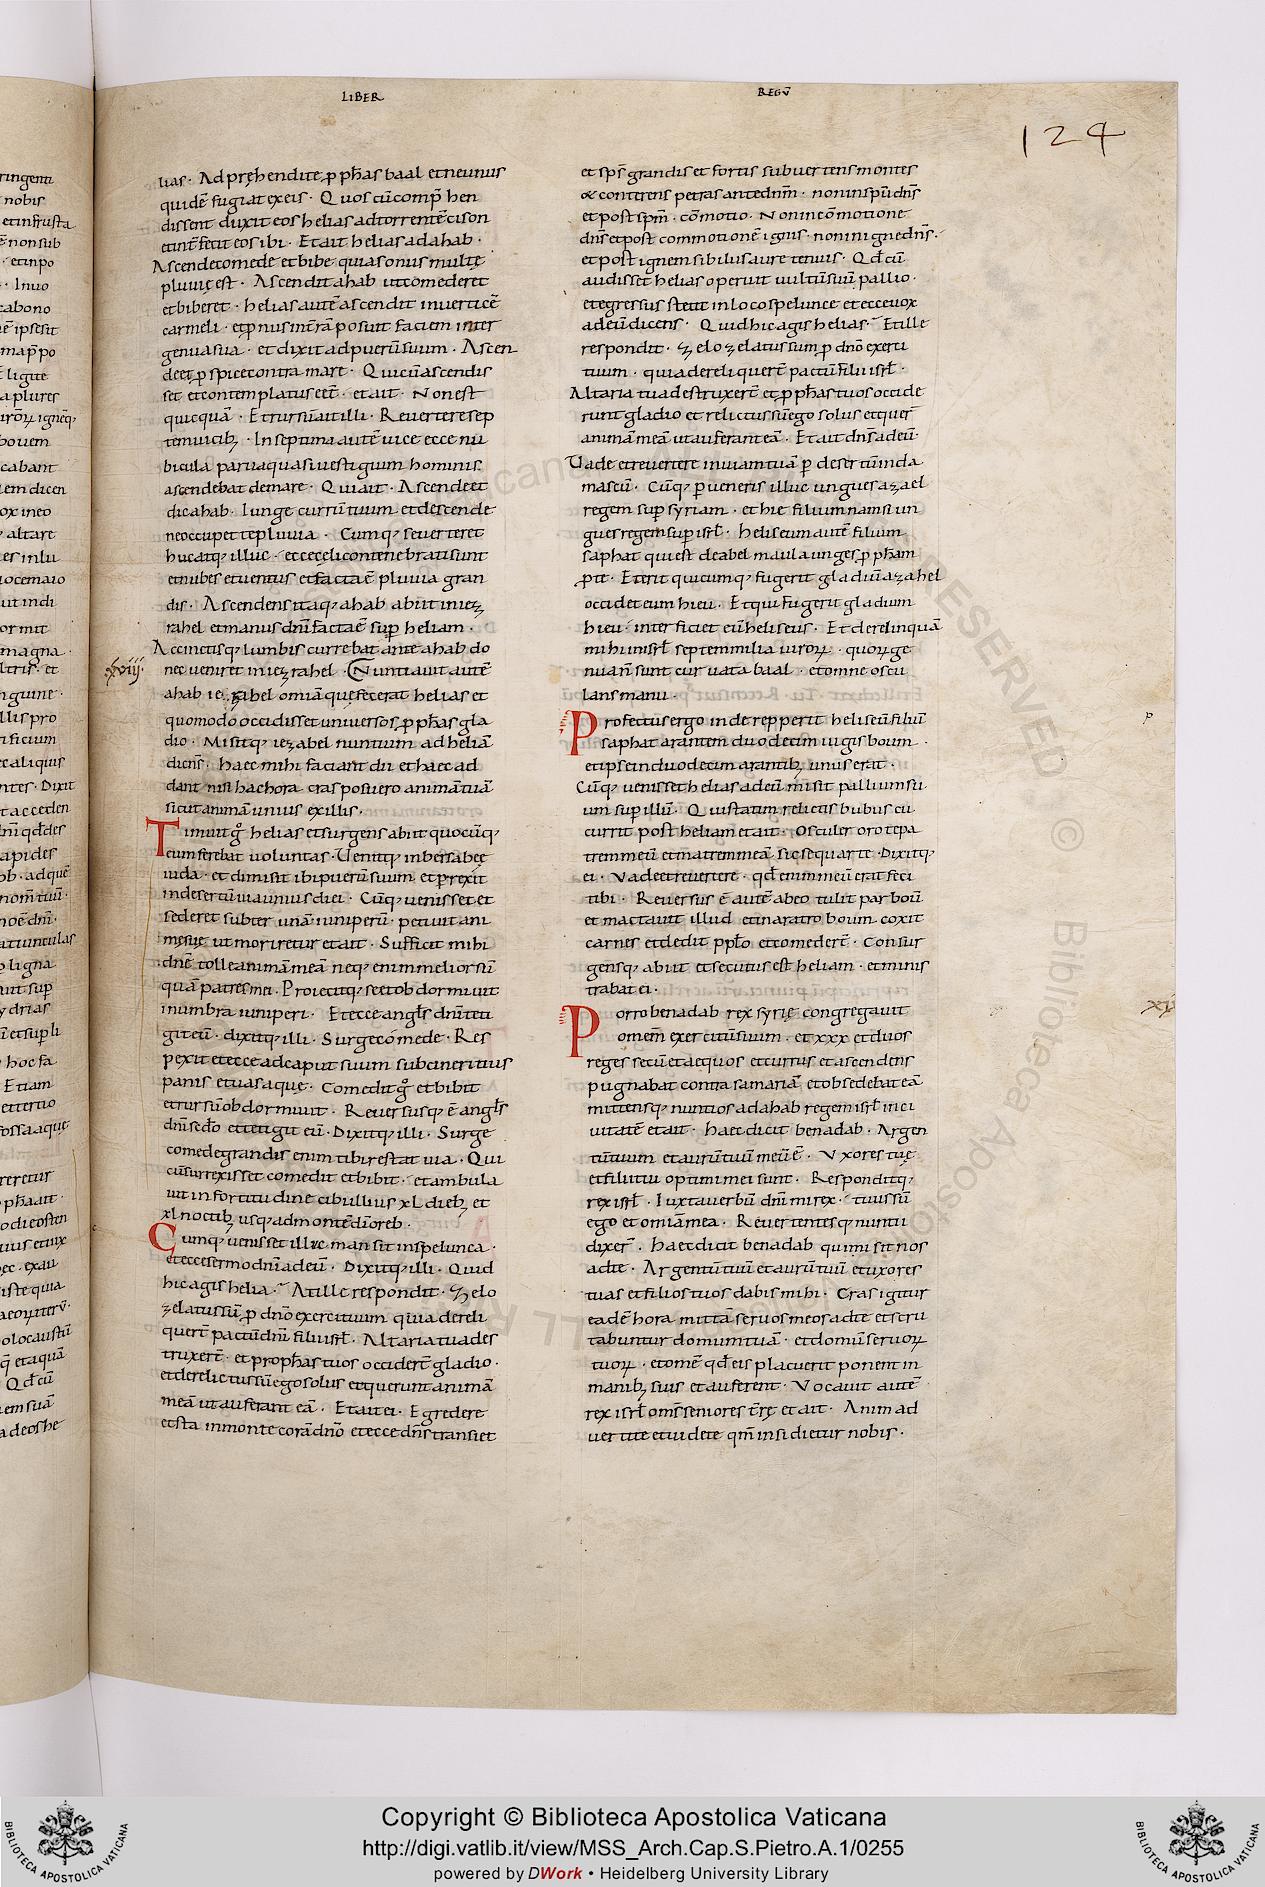 LIBER
REGŪ
124
lias · Adpręhendite ꝓphas baal et neunus
quidē fugiat exeis · Quos cū comp̄hen
dissent duxit eos helias adtorrentē cison
et int̄fecit eos ibi · Et ait helias adahab ·
Ascende comede et bibe quia sonus multę
pluuię est · Ascendit ahab ut comederet
et biberet · helias autē ascendit inuerticē
carmeli · et p̄nus int̄rā posuit faciem inter
genua sua · et dixit ad puerū suum · Ascen
de et ꝓspice contra mare · Qui cū ascendis
set et contemplatus eēt · et ait · Non est
quicquā · Et rursū ait illi · Reuertere sep
tem uicib; · In septima autē uice ecce nu
bicula parua quasi uestigium hominis
ascendebat demare · Qui ait · Ascende et
dic ahab · Iunge currū tuum et descende
ne occupet te pluuia · Cumq; se uerteret
huc atq; illuc · ecce cęli contenebrati sunt
et nubes et uentus et facta ē pluuia gran
dis · Ascendens itaq; ahab abiit in iez
rahel et manus dn̄i facta ē sup heliam ·
Accinctisq; lumbis currebat ante ahab do
xviij·
nec ueniret in iezrahel · Nuntiauit autē
ahab iezabel omīa que fecerat helias et
quomodo occidisset uniuersos ꝓphas gla
dio · Misitq; iezabel nuntium ad heliā
dicens · haec mihi faciant dii et haec ad
dant nisi hac hora cras posuero animā tuā
sicut animā unius exillis ·
Timuit gͦ helias et surgens abiit quocūq;
eum ferebat uoluntas · Uenitq; in bersabeę
iuda · et dimisit ibi puerū suum et perrexit
in desertū uia unius diei · Cūq; uenisset et
sederet subter unā iuniperū · petiuit ani
mę suę ut moriretur et ait · Sufficit mihi
dnē tolle animā meā neq; enim melior sū
quā patres mei · Proiecitq; se et obdormiuit
in umbra iuniperi · Et ecce angls dn̄i teti
git eū · dixitq; illi · Surge comede · Res
pexit et ecce ad caput suum subcinericius
panis et uas aquę · Comedit gͦ et bibit
et rursū obdormiuit · Reuersusq; ē angls
dn̄i sedo et tetigit eū · Dixitq; illi · Surge
comede grandis enim tibi restat uia · Qui
cū surrexisset comedit et bibit · et ambula
uit in fortitudine cibi illius xl dieb; et
xl noctib; usq; ad monte dī oreb ·
Cumq; uenisset illuc mansit in spelunca ·
et ecce sermo dn̄i adeū · Dixitq; illi · Quid
hic agis helia · At ille respondit · Zelo
zelatus sū ꝓ dn̄o exercituum quia dereli
quert̄ pactū dn̄i filii isrl · Altaria tua des
truxert̄ · et prophas tuos occidert̄ gladio ·
et derelictus sū ego solus et querunt animā
meā ut auferant eā · Et ait ei · Egredere
et sta in monte corā dn̄o et ecce dn̄s transiet
et sps̄ grandis et fortis subuertens montes
& conterens petras ante dnm̄ · non in spū dn̄s
et post spm̄ · cōmotio · Non in cōmotione
dn̄s et post commotionē ignis · non in igne dn̄s ·
et post ignem sibilus aure tenuis · Qd̄ cū
audisset helias operuit uultū suū pallio ·
et egressus stetit in loco spelunce et ecce uox
adeū dicens · Quid hic agis helias · Et ille
respondit · Zelo zelatus sum ꝓ dn̄o exerci
tuum · quia derelinquert̄ pactū filii isrl ·
Altaria tua destruxert̄ et ꝓphas tuos occide
runt gladio et relictus sū ego solus et quer̄
animā meā ut auferant eā · Et ait dn̄s adeū ·
Uade et reuertere in uiam tuā ꝑ desertū in da
mascū · Cūq; ꝑueneris illuc ungues azael
regem sup syriam · et hieu filium namsi un
gues regem sup isrl · heliseum autē filium
saphat qui est de abel maula unges ꝓpham
ꝓ te · Et erit quicumq; fugerit gladiū azahel
occidet eum hieu · Et qui fugerit gladium
hieu · interficiet eū heliseus · Et derelinquā
mihi in isrl septem milia uiroꝝ · quoꝝ ge
nua n̄ sunt curuata baal · et omne oscu
lans manu ·
Profectus ergo inde repperit heliseū filiū
saphat arantem duodecim iugis boum ·
et ipse in duodecim arantib; unus erat ·
Cūq; uenisset helias adeū misit pallium su
um sup illū · Qui statim relictis bubus cu
currit post heliam et ait · Osculer oro te pa
trem meū et matrem meā sic sequar te · Dixitq;
ei · Vade et reuertere · qd̄ enim meū erat feci
tibi · Reuersus ē autē ab eo tulit par boū
et mactauit illud et in aratro boum coxit
carnes et dedit pplo et comedert̄ · Consur
gensq; abiit et secutus est heliam · et minis
trabat ei ·
Porro benadab rex syrię congregauit
omem̄ exercitū suum · et xxx et duos
reges secū et aequos et currus et ascendens
pugnabat contra samariā et obsedebat eā
mittensq; nuntios ad ahab regem isrl in ci
uitatē et ait · haec dicit benadab · Argen
tū tuum et aurū tuū meū ē · Vxores tuę
et filii tui optimi mei sunt · Responditq;
rex isrl · Iuxta uerbū dn̄i mi rex · tuus sū
ego et omīa mea · Reuertentesq; nuntii
dixer̄ · haec dicit benadab qui misit nos
ad te · Argentū tuū et aurū tuū et uxores
tuas et filios tuos dabis mihi · Cras igitur
eadē hora mittā seruos meos ad te et scru
tabuntur domum tuā · et domū seruoꝝ
tuoꝝ · et omē qd̄ eis placuerit ponent in
manib; suis et auferent · Vocauit autē
rex isrl oms̄ seniores t̄rę et ait · Animad
uertite et uidete qm̄ insidietur nobis ·
Copyright © Biblioteca Apostolica Vaticana
http://digi.vatlib.it/view/MSS_Arch.Cap.S.Pietro.A.1/0255
powered by DWork • Heidelberg University Library
BIBLIOTECA APOSTOLICA VATICANA
BIBLIOTECA APOSTOLICA VATICANA